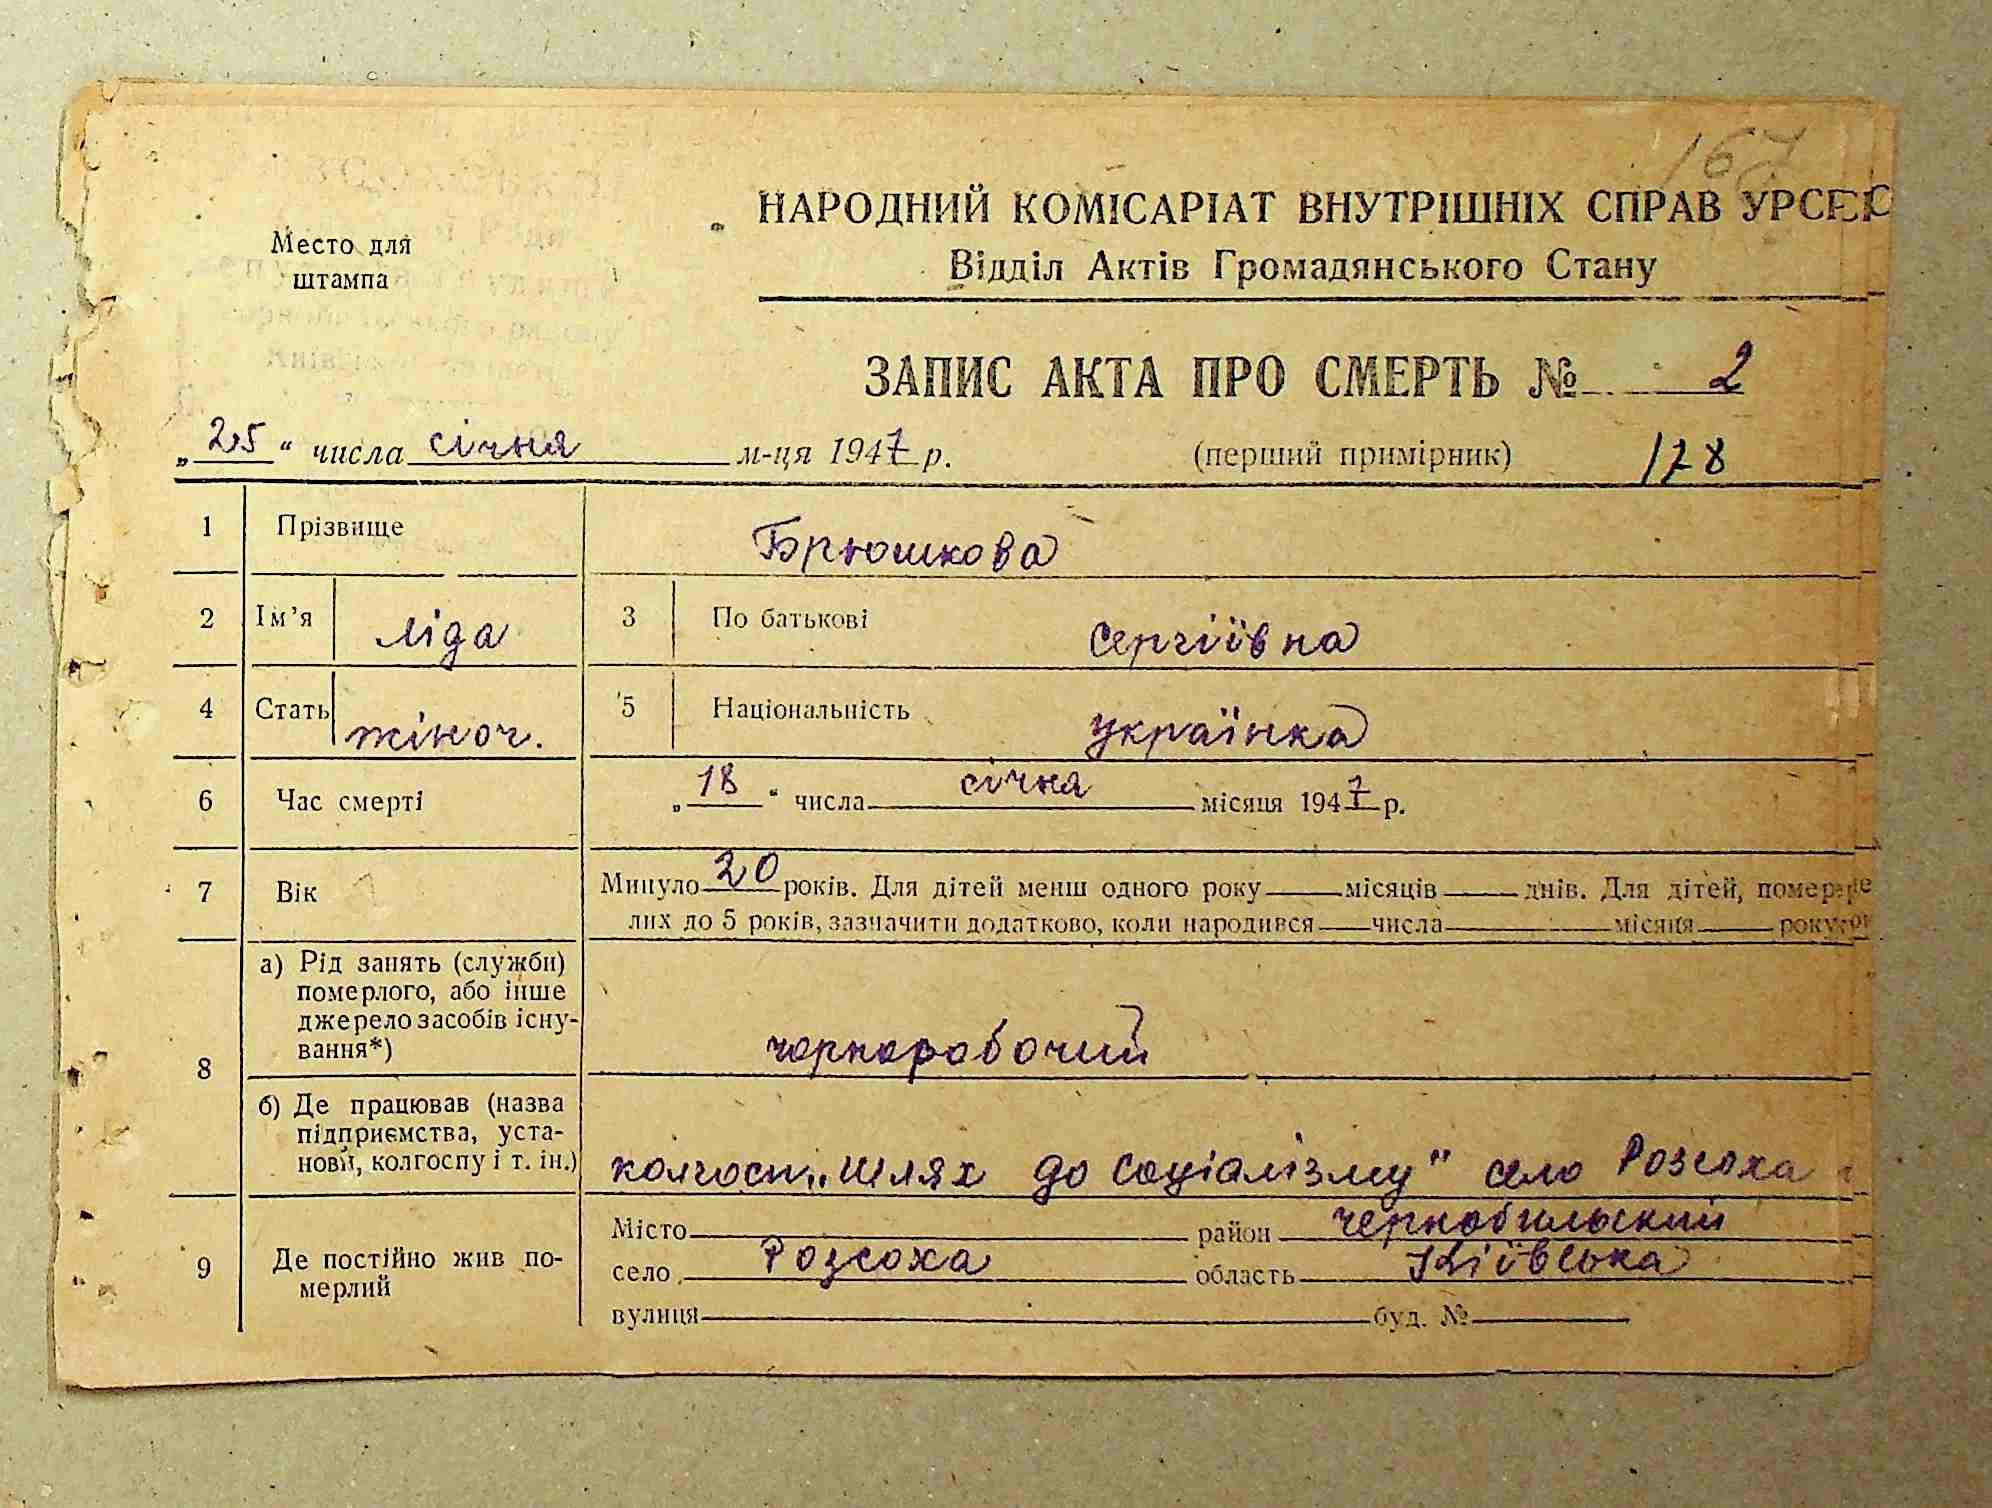 167
НАРОДНИЙ КОМІСАРІАТ ВНУТРІШНІХ СПРАВ УРСР
Место для
штампа
Відділ Актів Громадянського Стану
ЗАПИС АКТА ПРО СМЕРТЬ № 2
„25“ числа січня м-ця 1947 р. (перший примірник) 178
1 Прізвище Брюшкова
2 Ім’я Ліда 3 По батькові Сергіївна
4 Стать жіноч. 5 Національність українка
6 Час смерті „18“ числа січня місяця 1947 р.
7 Вік Минуло 20 років. Для дітей менш одного року місяців днів. Для дітей, помер-
лих до 5 років, зазначити додатково, коли народився числа місяця року
8 а) Рід занять (служби)
померлого, або інше
джерело засобів існу-
вання*) чорноробочий
б) Де працював (назва
підприємства, уста-
нови, колгоспу і т. ін.) колгосп „Шлях до соціалізму" село Розсоха
9 Де постійно жив по-
мерлий
Місто район Чернобильський
село Розсоха область Київська
вулиця буд. №